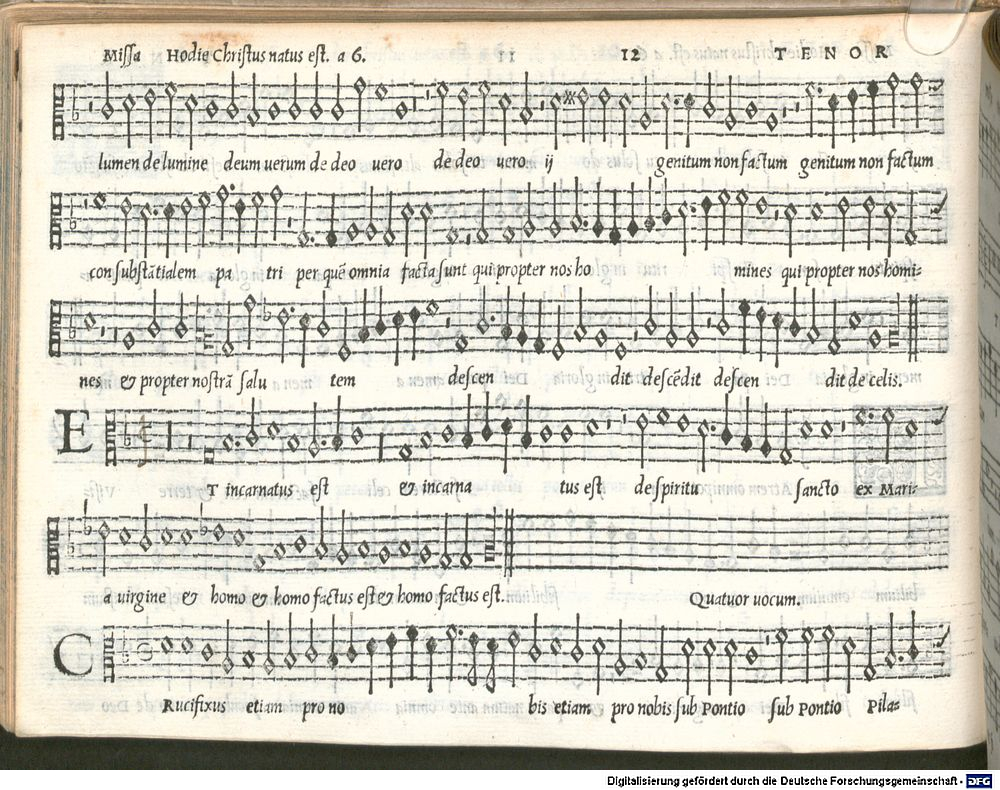 Missa Hodie Christus natus est. a 6. 11 12 TENOR
lumen de lumine deum uerum de deo uero de deo uero ij genitum non factum genitum non factum
consubstãtialem pa tri per quē omnia facta sunt qui propter nos ho mines qui propter nos homi=
nes & propter nostrã salu tem descen dit descēdit descen dit de celis.
ET incarnatus est & incarna tus est de spiritu sancto ex Mari=
a uirgine & homo & homo factus est & homo factus est. Quatuor uocum.
CRucifixus etiam pro no bis etiam pro nobis sub Pontio sub Pontio Pila=
Digitalisierung gefördert durch die Deutsche Forschungsgemeinschaft - DFG